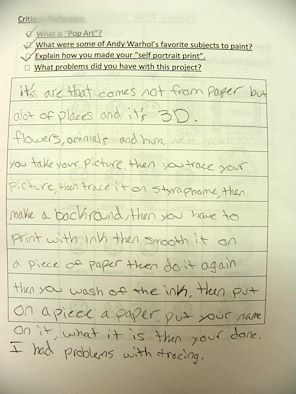 Critic
What is "Pop Art"?
What were some of Andy Warhol's favorite subjects to paint?
Explain how you made your "self portrait print".
What problems did you have with this project?
it's are that comes not from paper but
alot of places and it's 3D.
flowers, animals and him.
you take your picture, then you trace your
picture, then trace it on styraphame, then
make a backround, then you have to
print with ink then smooth it on
a piece of paper then do it again
then you wash of the ink, then put
on a piece a paper, put your name
on it, what it is then your done.
I had problems with tracing.